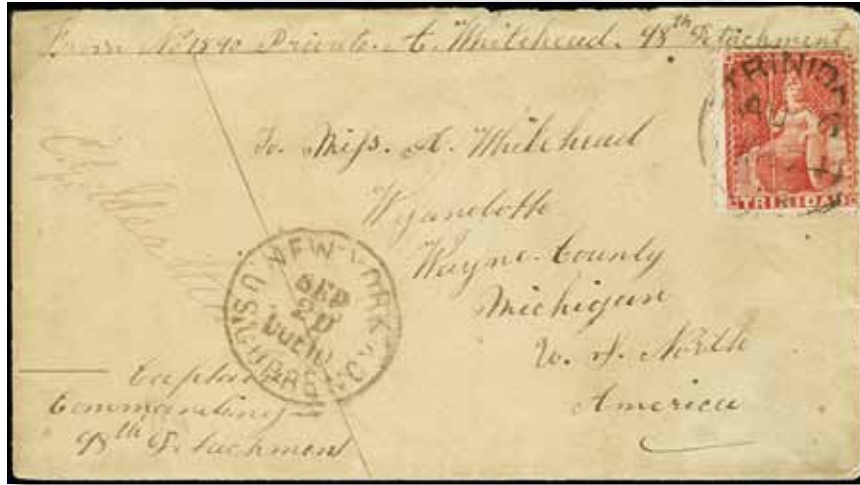 From No 1890 Private. A. Whitehead. 98th Detachment
TRINIDAD
AU
TRINIDAD
To. Miss. A. Whitehead
Wyandotte
Wayne County
Michigan
U. S. North
America
NEW-YORK
SEP
20
Due 10
U.S. CURRENCY
Captain
Commanding
98th Detachment